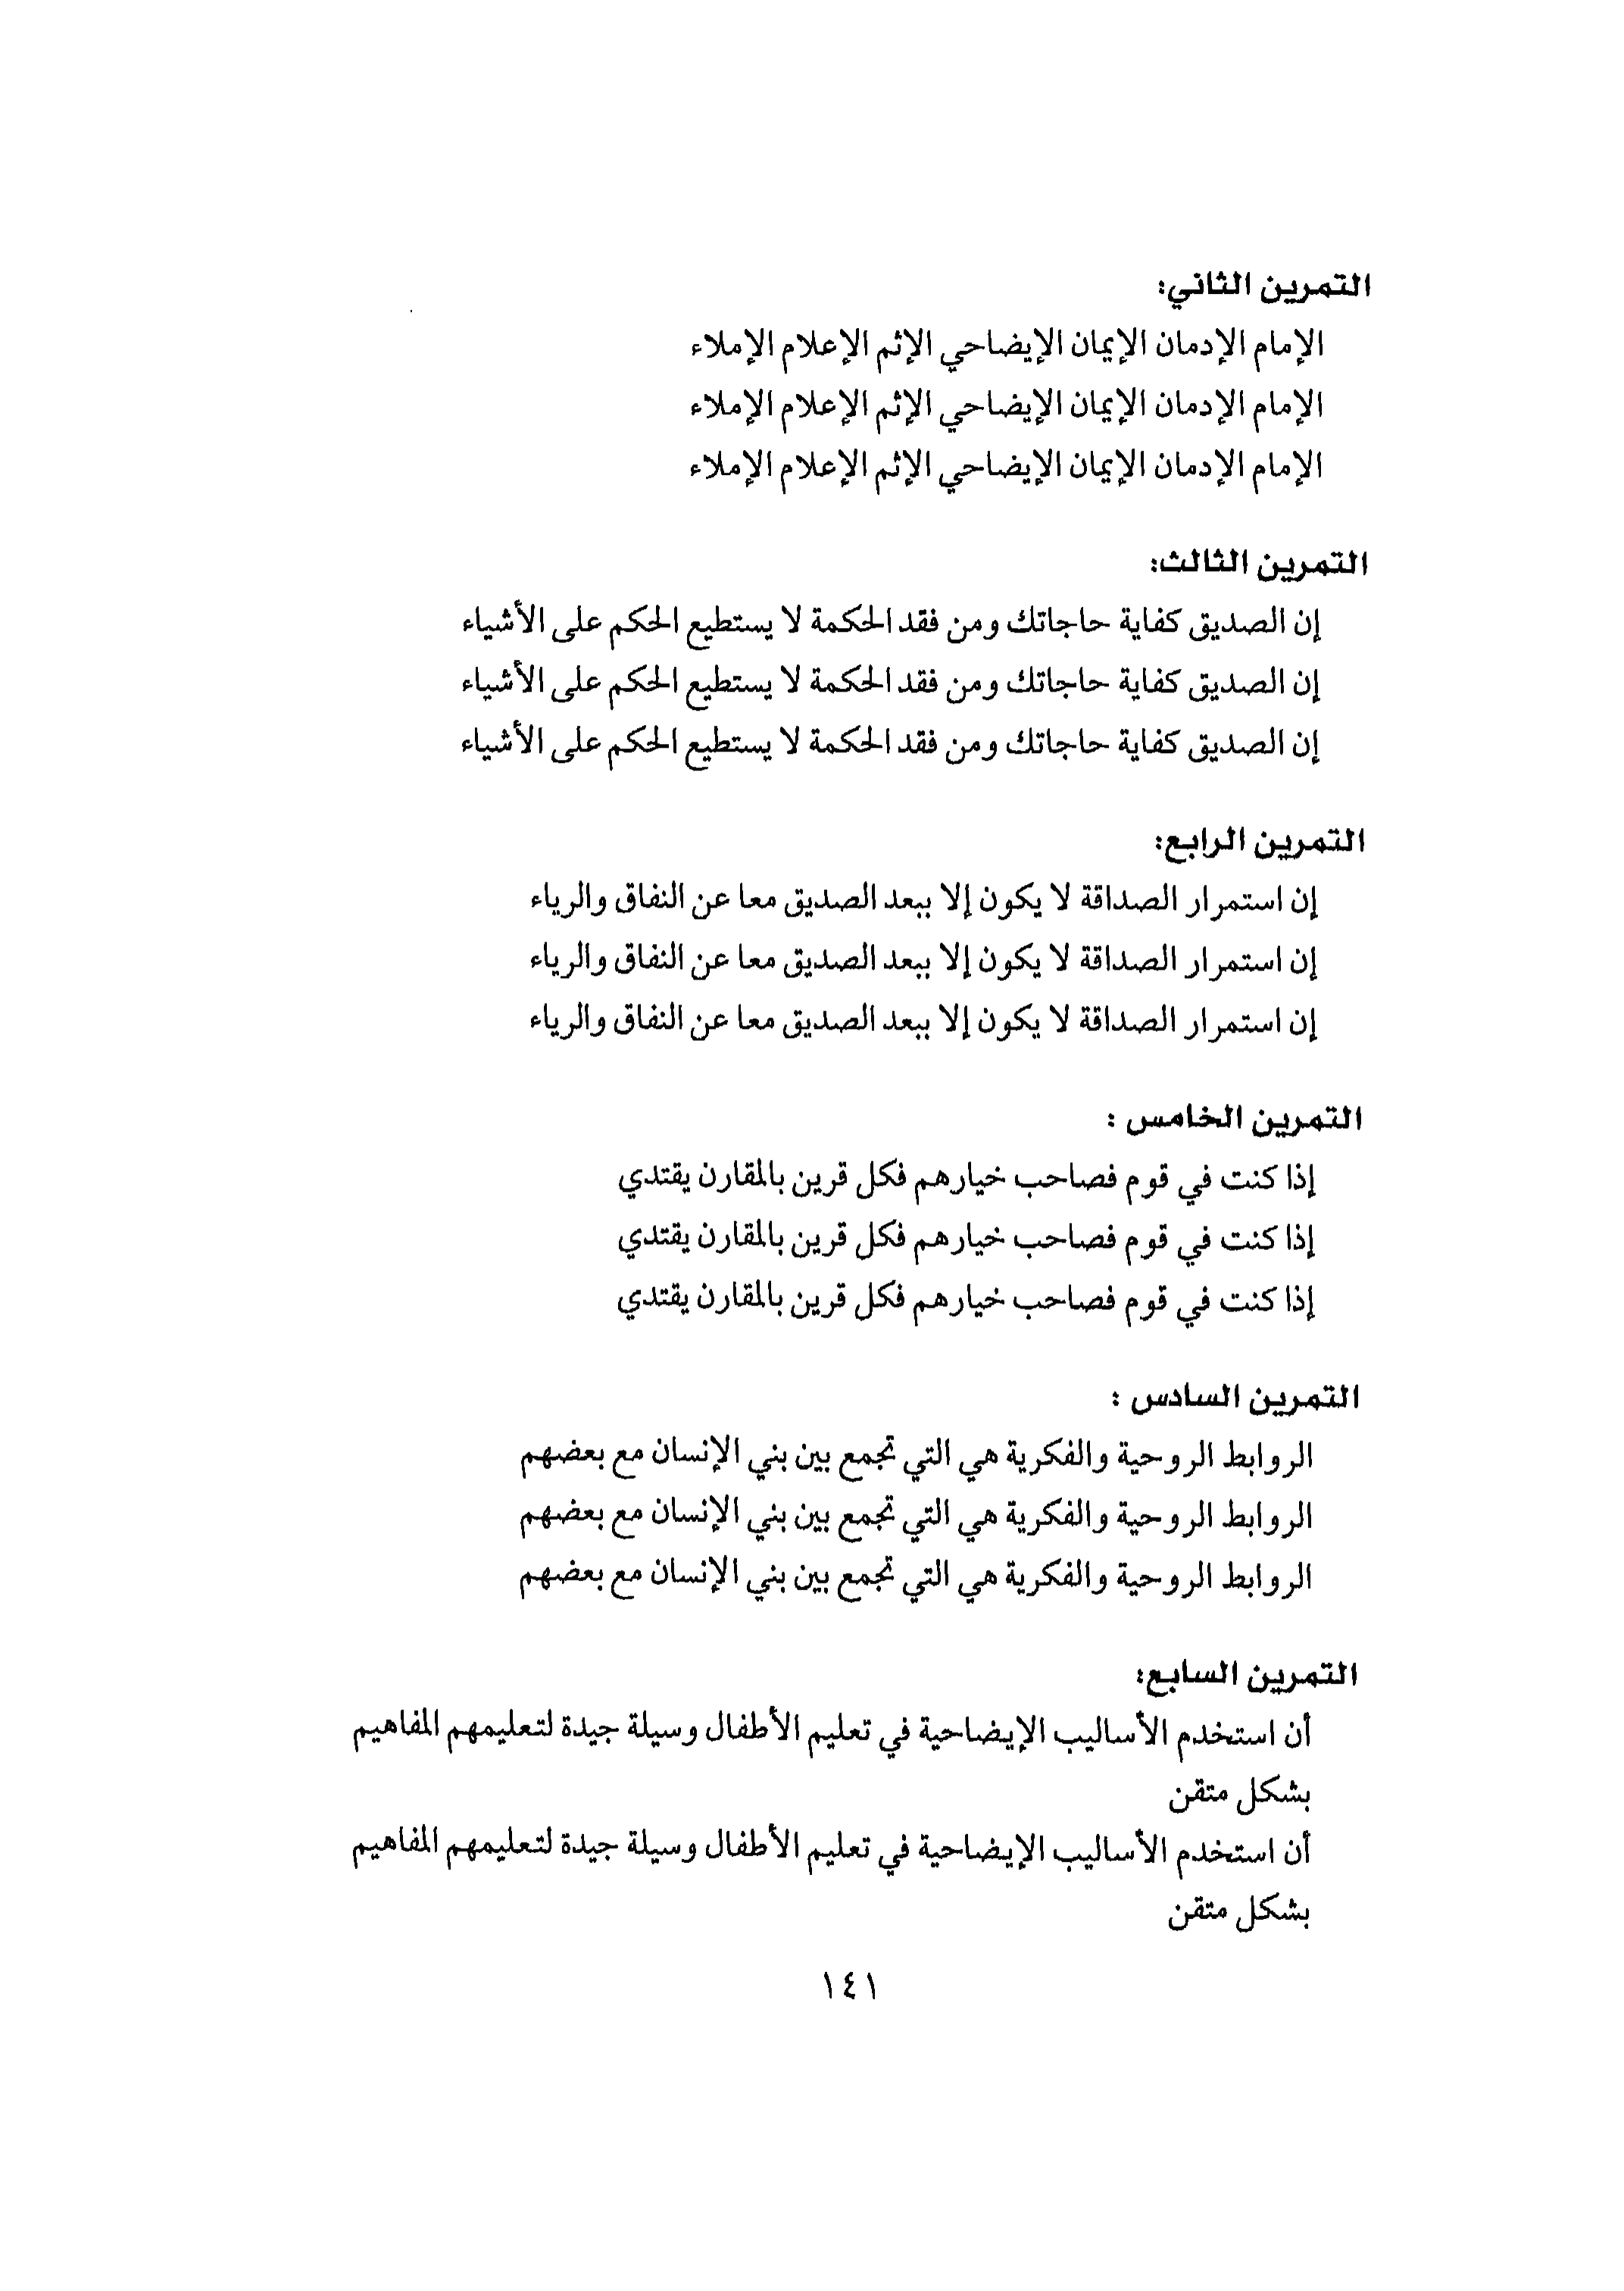 التمرين الثاني:
الإمام الإدمان الإيمان الإيضاحي الإثم الإعلام الإملاء
الإمام الإدمان الإيمان الإيضاحي الإثم الإعلام الإملاء
الإمام الإدمان الإيمان الإيضاحي الإثم الإعلام الإملاء
التمرين الثالث:
إن الصديق كفاية حاجاتك ومن فقد الحكمة لا يستطيع الحكم على الأشياء
إن الصديق كفاية حاجاتك ومن فقد الحكمة لا يستطيع الحكم على الأشياء
إن الصديق كفاية حاجاتك ومن فقد الحكمة لا يستطيع الحكم على الأشياء
التمرين الرابع:
إن استمرار الصداقة لا يكون إلا ببعد الصديق معا عن النفاق والرياء
إن استمرار الصداقة لا يكون إلا ببعد الصديق معا عن النفاق والرياء
إن استمرار الصداقة لا يكون إلا ببعد الصديق معا عن النفاق والرياء
التمرين الخامس :
إذا كنت في قوم فصاحب خيارهم فكل قرين بالمقارن يقتدي
إذا كنت في قوم فصاحب خيارهم فكل قرين بالمقارن يقتدي
إذا كنت في قوم فصاحب خيارهم فكل قرين بالمقارن يقتدي
التمرين السادس :
الروابط الروحية والفكرية هي التي تجمع بين بني الإنسان مع بعضهم
الروابط الروحية والفكرية هي التي تجمع بين بني الإنسان مع بعضهم
الروابط الروحية والفكرية هي التي تجمع بين بني الإنسان مع بعضهم
التمرين السابع:
أن استخدم الأساليب الإيضاحية في تعليم الأطفال وسيلة جيدة لتعليمهم المفاهيم
بشكل متقن
أن استخدم الأساليب الإيضاحية في تعليم الأطفال وسيلة جيدة لتعليمهم المفاهيم
بشكل متقن
١٤١